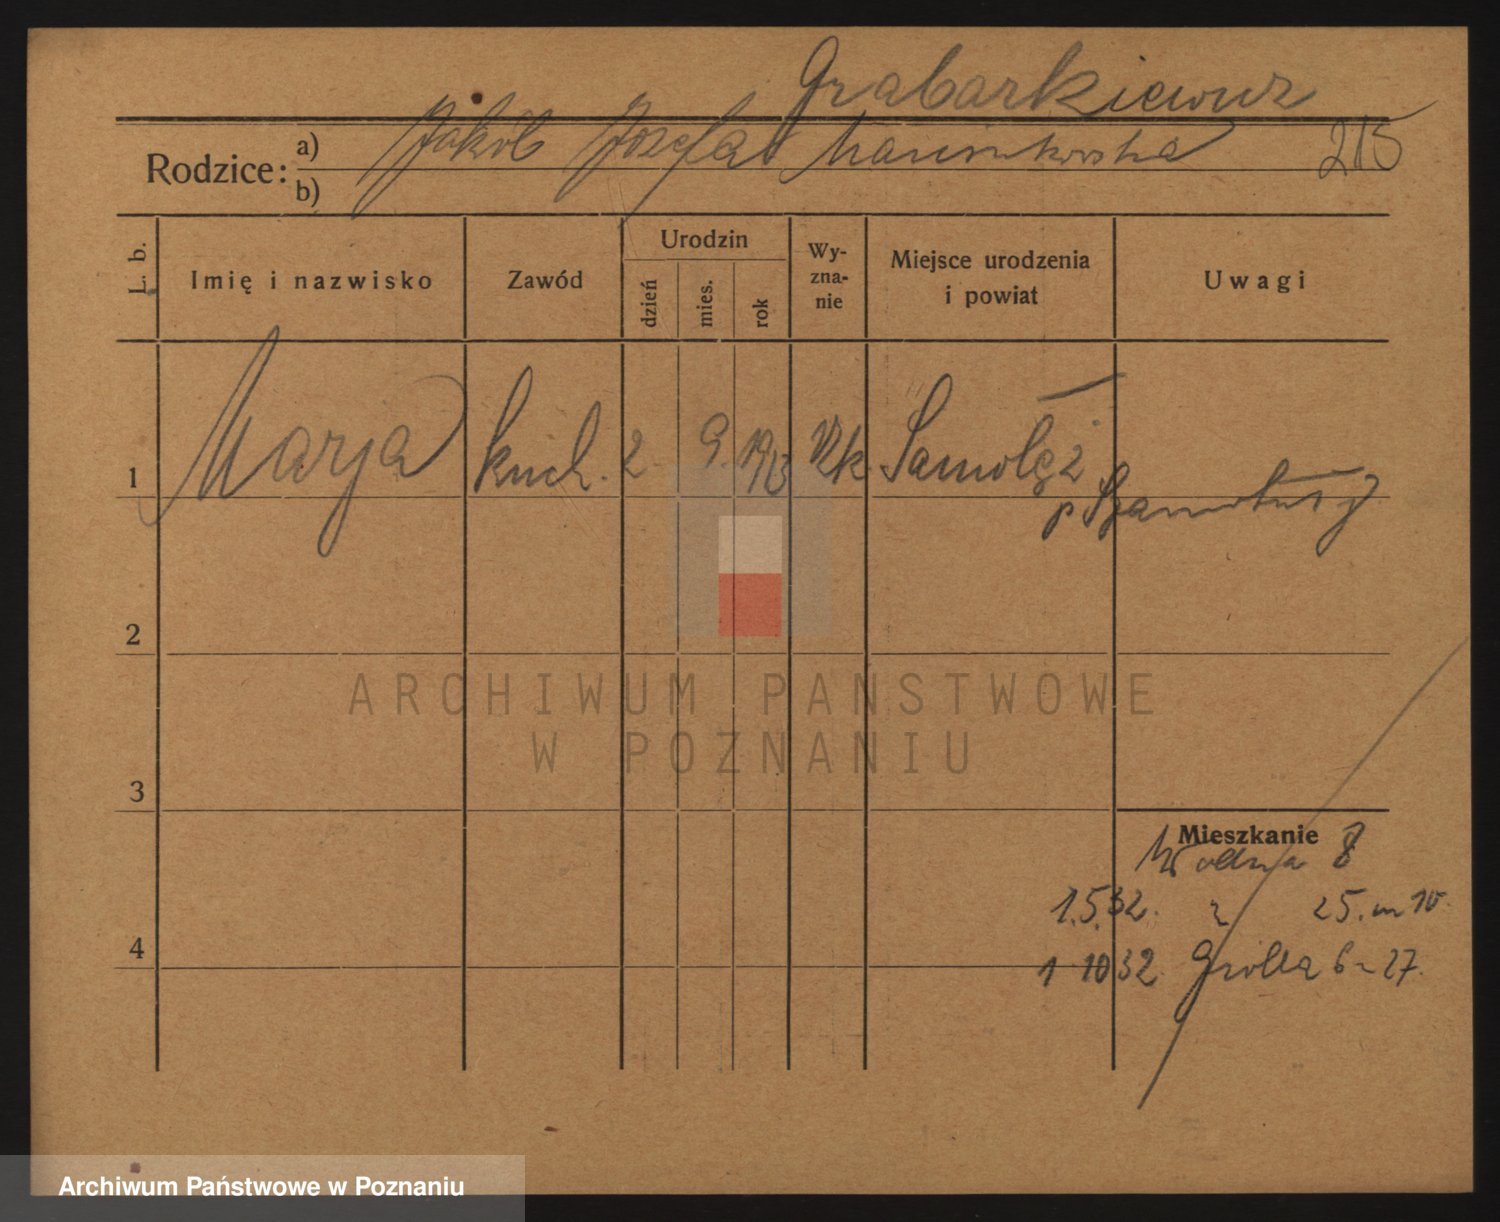 Grabarkiewicz
Rodzice: a) Jakób Józefa Marcinkowska 215
b)
L. b. Imię i nazwisko Zawód Urodzin dzień mies. rok Wy-zna-nie Miejsce urodzenia i powiat Uwagi
1 Marja kuch. 2 9. 1913 rzk. Samołęż
p Szamotuły
2
ARCHIWUM PAŃSTWOWE
W POZNANIU
3
Mieszkanie
Wodna 8
1.5.32. 25. m 10.
4
1 10 32 6 27.
Archiwum Państwowe w Poznaniu